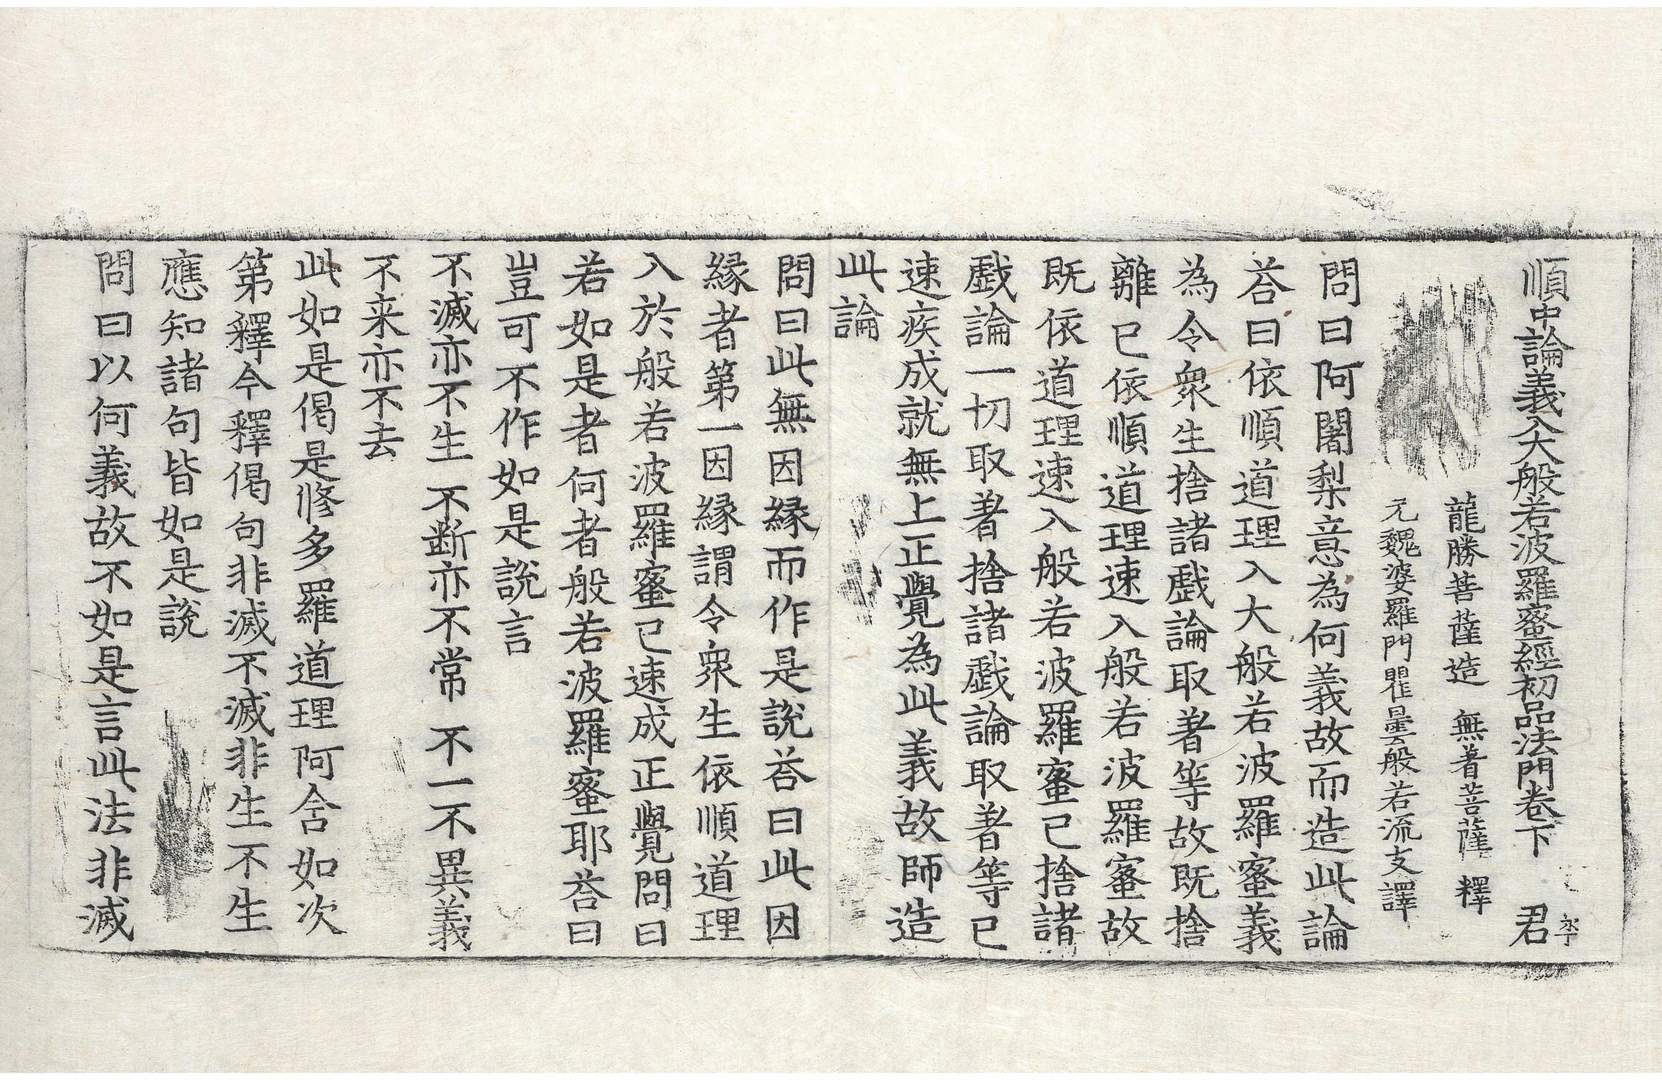 順中論義入大般若波羅蜜經初品法門卷下 君
龍勝菩薩造 無著菩薩釋
元魏婆羅門瞿曇般若流支譯
問曰阿闍梨意為何義故而造此論
荅曰依順道理入大般若波羅蜜義
為令衆生捨諸戲論取著等故既捨
離已依順道理速入般若波羅蜜故
既依道理速入般若波羅蜜已捨諸
戲論一切取著捨諸戲論取著等已
速疾成就無上正覺為此義故師造
此論
問曰此無因緣而作是說荅曰此因
緣者第一因緣謂令衆生依順道理
入於般若波羅蜜已速成正覺問曰
若如是者何者般若波羅蜜耶荅曰
豈可不作如是說言
不滅亦不生 不断亦不常 不一不異義
不来亦不去
此如是偈是修多羅道理阿含如次
第釋今釋偈句非滅不滅非生不生
應知諸句皆如是說
問曰以何義故不如是言此法非滅